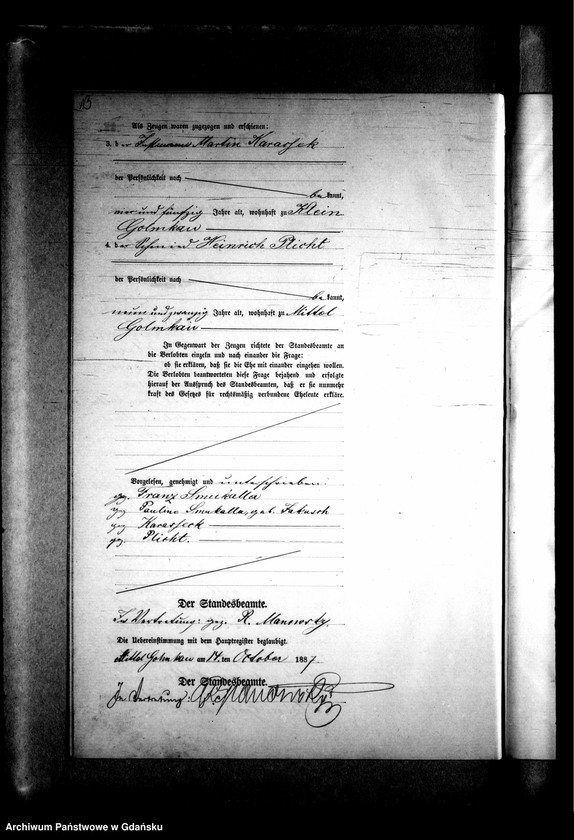 13
Als Zeugen waren zugezogen und erschienen:
3. der Instmann Martin Karassek
der Persönlichkeit nach
bekannt,
vier und fünfzig Jahre alt, wohnhaft zu Klein
Golmkau
4. der Schmied Heinrich Plicht
der Persönlichkeit nach
bekannt,
neun und zwanzig Jahre alt, wohnhaft zu Mittel
Golmkau
In Gegenwart der Zeugen richtete der Standesbeamte an
die Verlobten einzeln und nach einander die Frage:
ob sie erklären, daß sie die Ehe mit einander eingehen wollen.
Die Verlobten beantworteten diese Frage bejahend und erfolgte
hierauf der Ausspruch des Standesbeamten, daß er sie nunmehr
kraft des Gesetzes für rechtsmäßig verbundene Eheleute erkläre.
Vorgelesen, genehmigt und unterschrieben:
gez. Franz Smukalla
gez. Pauline Smukalla, geb.
gez. Karasseck
gez. Plicht.
Der Standesbeamte.
In Vertretung: gez. R.
Die Uebereinstimmung mit dem Hauptregister beglaubigt.
Mittel Golmkau am 14. ten October 1887.
Der Standesbeamte.
In Vertretung:
Archiwum Państwowe w Gdańsku